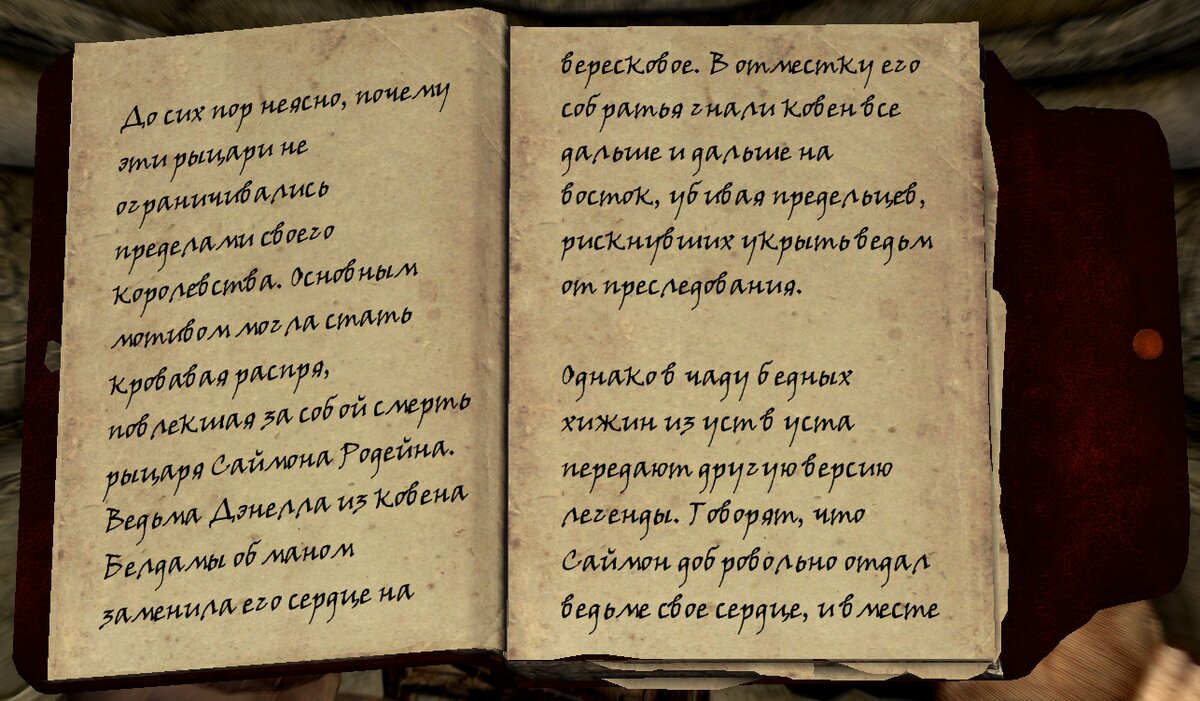 До сих пор неясно, почему
эти рыцари не
ограничивались
пределами своего
королевства. Основным
мотивом могла стать
кровавая распря,
повлекшая за собой смерть
рыцаря Саймона Родейна.
Ведьма Дэнелла из ковена
Белдамы обманом
заменила его сердце на
вересковое. В отместку его
собратья гнали ковен все
дальше и дальше на
восток, убивая предельцев,
рискнувших укрыть ведьм
от преследования.
Однако в чаду бедных
хижин из уст в уста
передают другую версию
легенды. Говорят, что
Саймон добровольно отдал
ведьме свое сердце, и вместе